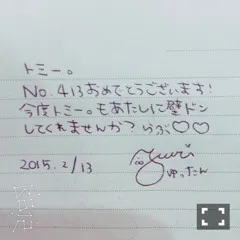 トミー。
No.413おめでとうございます!
今度トミー。もあたしに壁ドン
してくれませんか? らぶ♡♡
2015.2/13
yuri
ゆったん